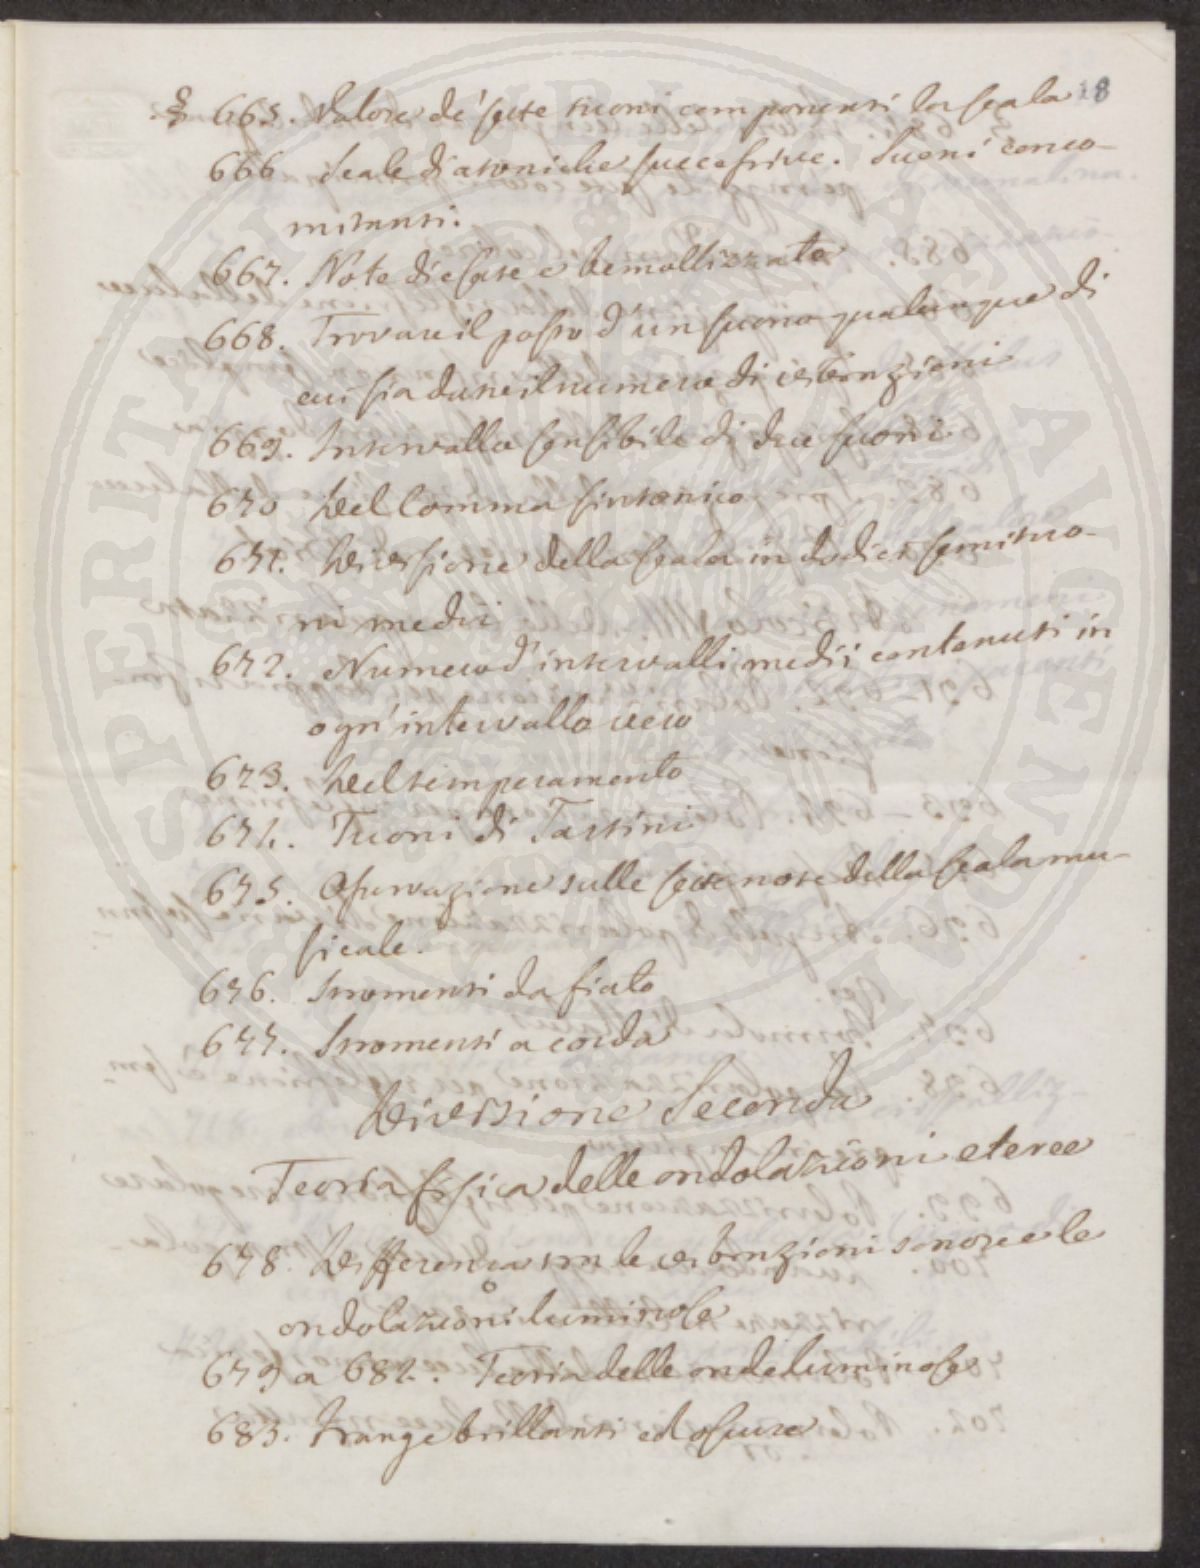 18
§ 665. Valore de' sette suoni componenti la scala
666. Scale diatoniche successive. Suoni conco-
mitanti.
667. Note diesate e bemollizzate
668. Trovare il posto d'un suono qualunque di
cui sia dato il numero di vibrazioni
669. Intervallo sensibile di due suoni
670. Del Comma sintonico
671. Divisione della scala in dodici semituo-
ni medii
672. Numero d'intervalli medii contenuti in
ogn'intervallo vero
673. Del temperamento
674. Suoni di Tartini
675. Osservazione sulle sette note della scala mu-
sicale.
676. Stromenti da fiato
677. Stromenti a corda
Divisione Seconda
Teoria fisica delle ondolazioni eteree
678. Differenza tra le vibrazioni sonore e le
ondolazioni luminose
679 a 682. Teoria delle onde luminose
683. Frange brillanti ed oscure